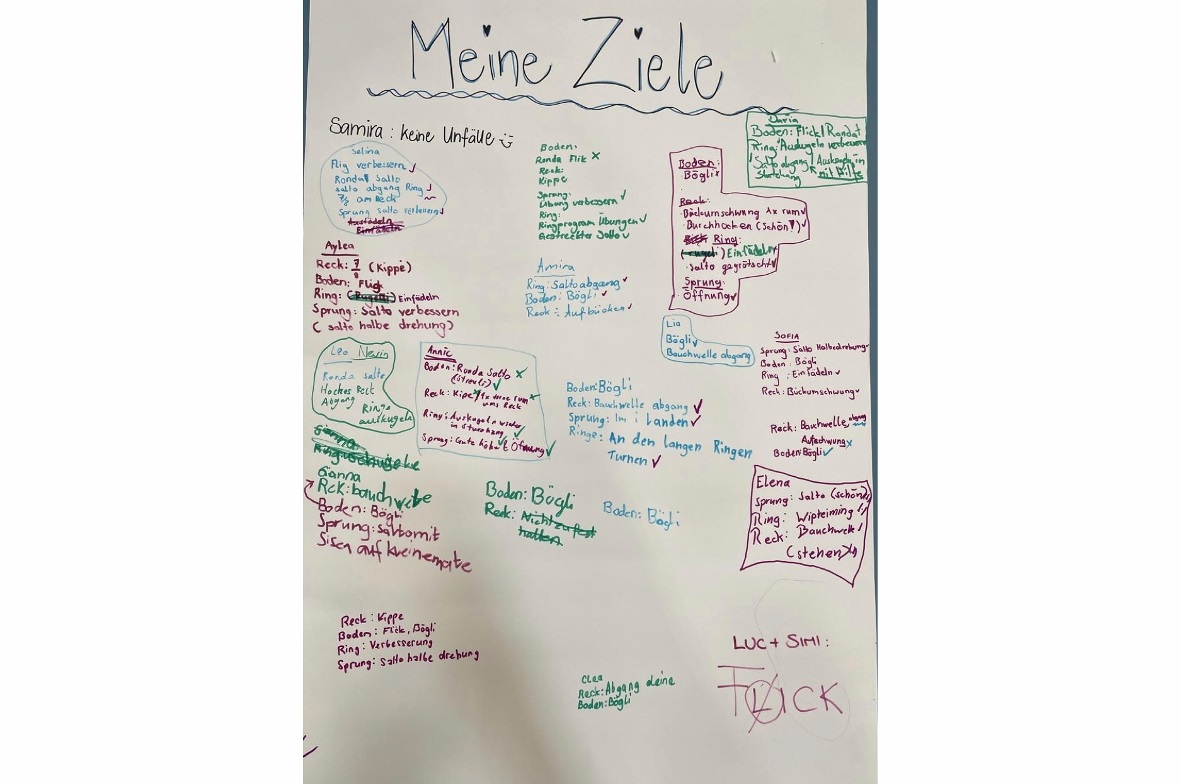 Meine Ziele
Samira: keine Unfälle
Selina
Flig verbessern
Ronda Salto
salto abgang Ring
7/8 am Reck
Sprung Salto verbessern
Boden:
Ronda Flik
Reck:
Kippe
Sprung:
Übung verbessern
Ring:
Ringprogram Übungen
Gestreckter Salto
Boden:
Bögli
Reck:
Bückumschwung 1x rum
Durchhocken (schön!)
Ring:
Einfädeln
Salto gegrätscht
Sprung:
Öffnung
Daria
Boden: Flick/Rondat
Ring: Auskugeln verbessern
Salto abgang/
mit Hilfe
Aylea
Reck: 7/8 (Kippe)
Boden: Flig
Ring: Einfädeln
Sprung: Salto verbessern
(salto halbe drehung)
Amira
Ring: Salto abgang
Boden: Bögli
Reck: Aufbücken
Lia
Bögli
Bauchwelle abgang
SOFIA
Sprung: Salto Halbedrehung
Boden: Bögli
Ring: Einfädeln
Reck: Bückumschwung
Leo Nevin
Ronda salto
Hockes
Abgang
Ringe
auskugeln
Annic
Boden: Ronda Salto
Reck: Kipe
ums Reck
Ring: Auskugeln
Sprung: Gute höhe & Öffnung
Boden: Bögli
Reck: Bauchwelle abgang
Sprung: Im i Landen
Ringe: An den langen Ringen
Turnen
Reck: Bauchwelle abgang
Aufschwung
Boden: Bögli
Gianna
Reck: bauchwele
Boden: Bögli
Sprung: salto mit
Sisen auf kleinemate
Boden: Bögli
Reck: Nicht zu fest
halten
Boden: Bögli
Elena
Sprung: Salto (schön)
Ring: Wipteiming
Reck: Bauchwele
(stehen)
Reck: Kippe
Boden: Flick, Bögli
Ring: Verbesserung
Sprung: Salto halbe drehung
Clea
Reck: Abgang
Boden: Bögli
LUC + SIMI:
FLICK